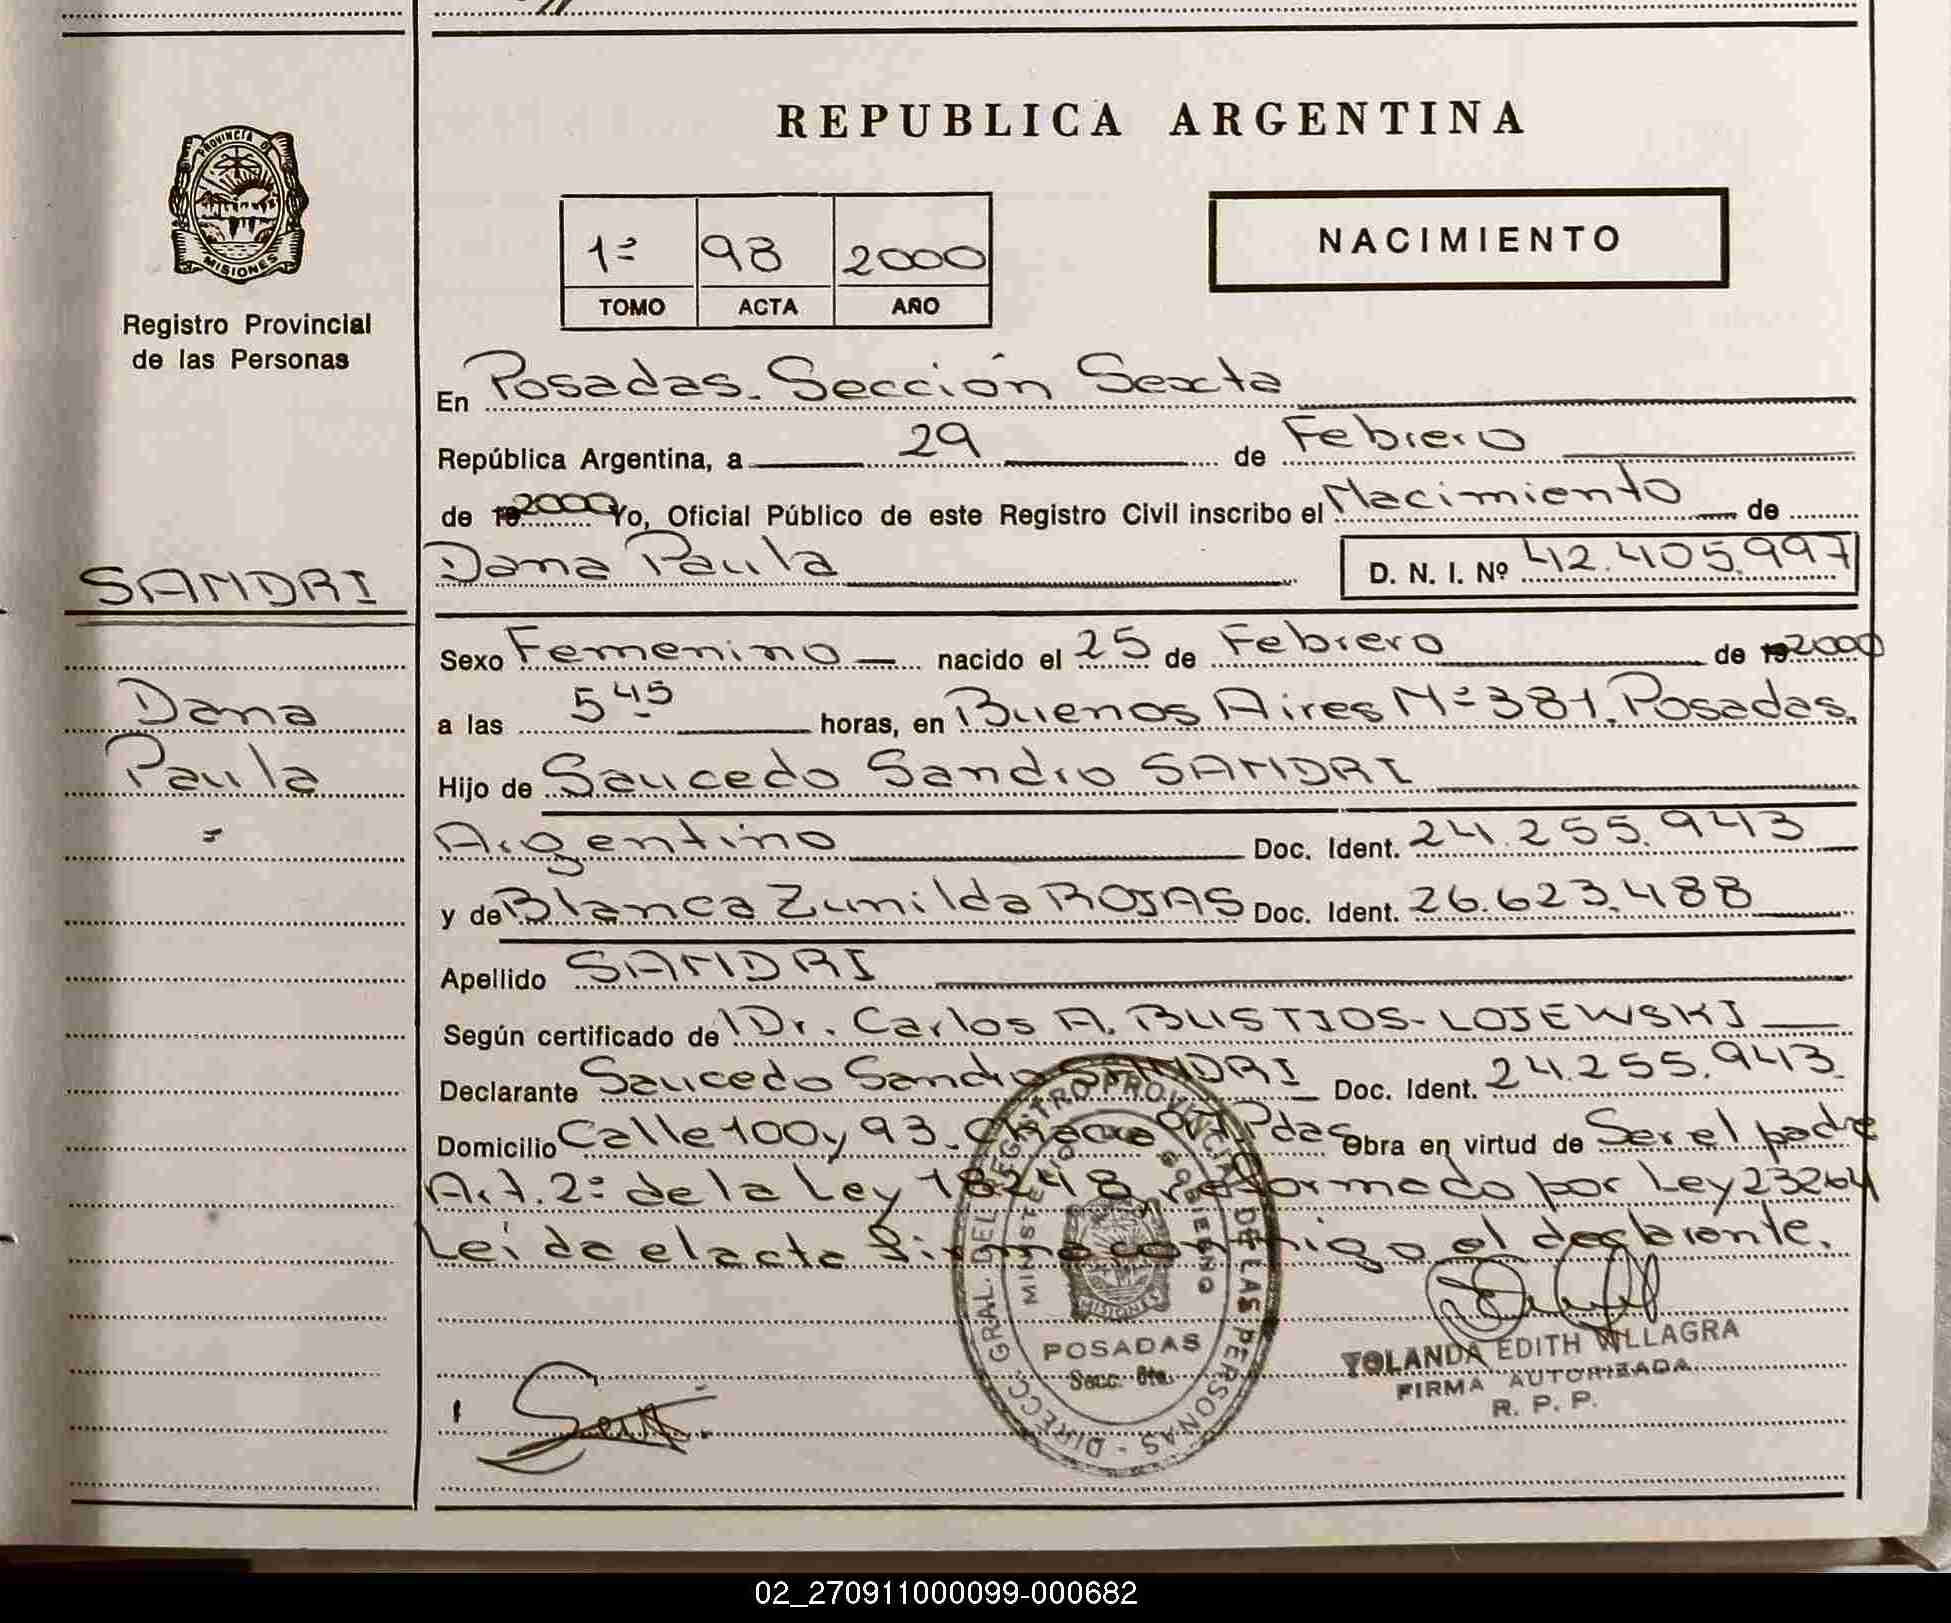 REPUBLICA ARGENTINA
PROVINCIA DE
MISIONES
Registro Provincial
de las Personas
1º 98 2000
TOMO ACTA AÑO
NACIMIENTO
En Posadas. Sección Sexta
República Argentina, a 29 de Febrero
de 19 2000 Yo, Oficial Público de este Registro Civil inscribo el Nacimiento de
SANDRI
Dana Paula D. N. I. Nº 42.405.997
Sexo Femenino nacido el 25 de Febrero de 19 2000
Dana
a las 5 45 horas, en Buenos Aires Nº 381. Posadas.
Paula
Hijo de Saucedo Sandro SANDRI
Argentino Doc. Ident. 24.255.943
y de Blanca Zunilda ROJAS Doc. Ident. 26.623.488
Apellido SANDRI
Según certificado de Dr. Carlos A. BUSTJOS-LOJEWSKI
Declarante Saucedo Sandro SANDRI Doc. Ident. 24.255.943
Domicilio Calle 100 y 93. Chacra Pdas Obra en virtud de Ser el padre
Art. 2º de la Ley 18248 reformado por Ley 23264
Leida el acta firma conmigo el declarante.
DIRECC. GRAL. DEL REGISTRO PROVINCIAL DE LAS PERSONAS
MINISTERIO GOBIERNO
MISIONES
POSADAS
Secc. 6ta.
YOLANDA EDITH VILLAGRA
FIRMA AUTORIZADA
R. P. P.
02_270911000099-000682